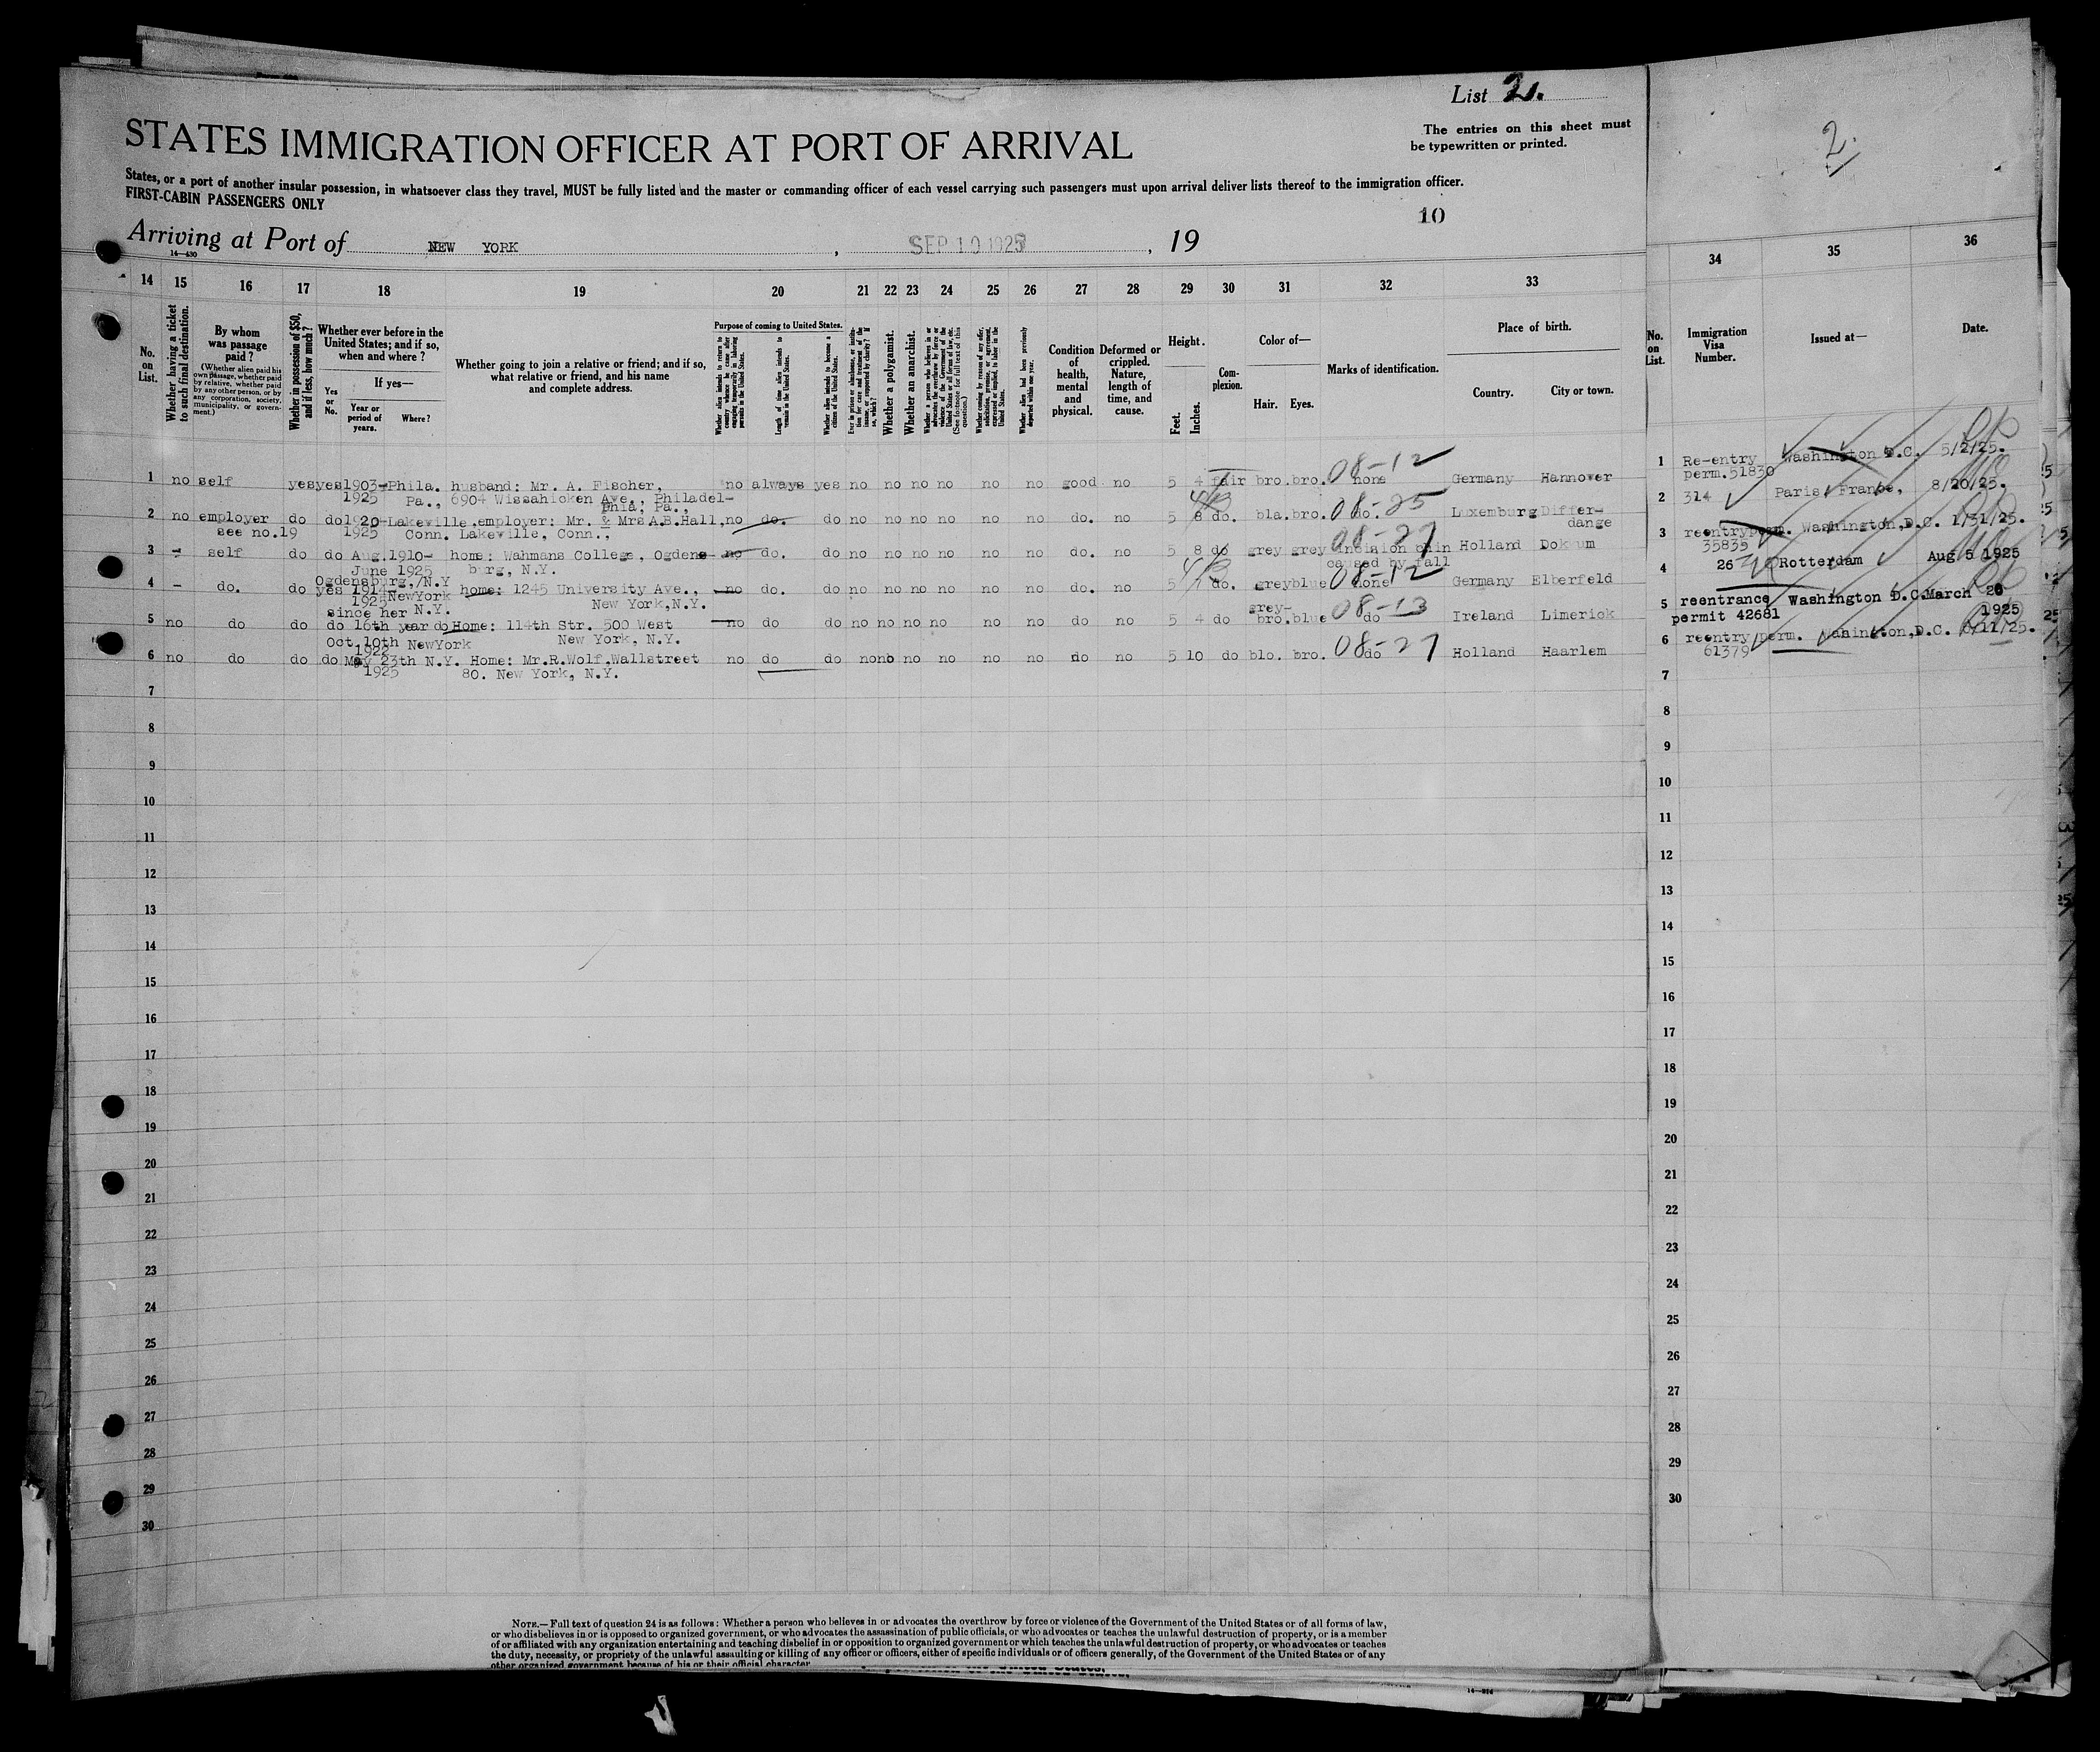 List 2.
STATES IMMIGRATION OFFICER AT PORT OF ARRIVAL
The entries on this sheet must
be typewritten or printed.
2.
States, or a port of another insular possession, in whatsoever class they travel, MUST be fully listed and the master or commanding officer of each vessel carrying such passengers must upon arrival deliver lists thereof to the immigration officer.
FIRST-CABIN PASSENGERS ONLY
10
Arriving at Port of NEW YORK , SEP 10 1925 , 19
14—430
14 15 16 17 18 19 20 21 22 23 24 25 26 27 28 29 30 31 32 33 34 35 36
No. on List.
Whether having a ticket to such final destination.
By whom was passage paid?
(Whether alien paid his own passage, whether paid by relative, whether paid by any other person, or by any corporation, society, municipality, or government.)
Whether in possession of $50, and if less, how much?
Whether ever before in the United States; and if so, when and where?
Yes or No.
If yes—
Year or period of years.
Where?
Whether going to join a relative or friend; and if so, what relative or friend, and his name and complete address.
Purpose of coming to United States.
Length of time alien intends to remain in the United States.
Whether alien intends to become a citizen of the United States.
Whether a polygamist.
Whether an anarchist.
(See footnote for full text of this question.)
Whether alien had been previously deported within one year.
Condition of health, mental and physical.
Deformed or crippled. Nature, length of time, and cause.
Height.
Feet. Inches.
Complexion.
Color of—
Hair. Eyes.
Marks of identification.
Place of birth.
Country. City or town.
No. on List.
Immigration Visa Number.
Issued at—
Date.
1 no self yes yes 1903- Phila. husband: Mr. A. Fischer, no always yes no no no no no no good no 5 4 fair bro. bro. none 08-12 Germany Hannover
1925 Pa., 6904 Wissahicken Ave., Philadel-
phia, Pa.,
2 no employer do do 1920- Lakeville, employer: Mr. & Mrs A.B.Hall, no do. do no no no no no no do. no 5 8 do. bla. bro. do. 08-25 Luxemburg Differ-
see no.19 1925 Conn. Lakeville, Conn., dange
3 - self do do Aug.1910- home: Wahmans College, Ogdens- no do. do no no no no no no do. no 5 8 do grey grey 08-27 Holland Dokkum
June 1925 burg, N.Y. caused by fall
Ogdensburg,/N.Y
4 - do. do yes 1914- NewYork home: 1245 University Ave., no do. do no no no no no no do. no 5 7 do. grey blue none 08-12 Germany Elberfeld
1925 N.Y. New York,N.Y.
since her grey-
5 no do do do 16th year do Home: 114th Str. 500 West no do do no no no no no no do no 5 4 do bro. blue do 08-13 Ireland Limerick
Oct.10th NewYork New York, N.Y.
1922
6 no do do do May 23th N.Y. Home: Mr.R.Wolf,Wallstreet no do do no no no no no no do no 5 10 do blo. bro. do 08-27 Holland Haarlem
1925 80. New York, N.Y.
7
8
9
10
11
12
13
14
15
16
17
18
19
20
21
22
23
24
25
26
27
28
29
30
1 Re-entry Washington D.C. 5/2/25.
perm.51830
2 314 Paris France, 8/20/25.
3 reentryperm. Washington,D.C. 1/31/25.
35835
4 26 Rotterdam Aug 5 1925
5 reentrance Washington D.C. March 20
permit 42681 1925
6 reentry perm. Washington,D.C. /11/25.
61379
7
8
9
10
11
12
13
14
15
16
17
18
19
20
21
22
23
24
25
26
27
28
29
30
NOTE.—Full text of question 24 is as follows: Whether a person who believes in or advocates the overthrow by force or violence of the Government of the United States or of all forms of law,
or who disbelieves in or is opposed to organized government, or who advocates the assassination of public officials, or who advocates or teaches the unlawful destruction of property, or is a member
of or affiliated with any organization entertaining and teaching disbelief in or opposition to organized government or which teaches the unlawful destruction of property, or who advocates or teaches
the duty, necessity, or propriety of the unlawful assaulting or killing of any officer or officers, either of specific individuals or of officers generally, of the Government of the United States or of any
other organized government because of his or their official character.